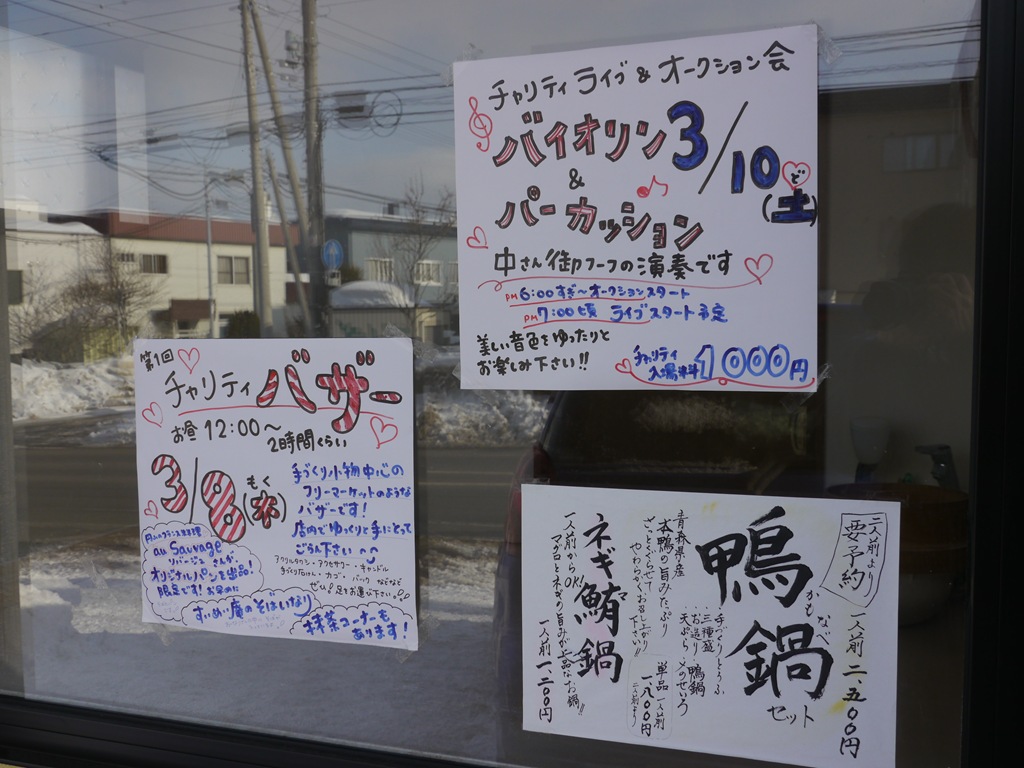 チャリティ ライブ & オークション会
バイオリン 3/10 (土)
ど
&
パーカッション
中さん御フーフの演奏です
PM 6:00すぎ〜オークションスタート
PM 7:00頃 ライブスタート予定
美しい音色をゆったりと
お楽しみ下さい!!
チャリティ
入場料 1000円
第1回
チャリティ バザー
お昼 12:00〜
2時間くらい
3/8 (木)
もく
手づくり小物中心の
フリーマーケットのような
バザーです!
店内でゆっくり手にとって
ごらん下さい
アクリルタワシ・アクセサリー・キャンドル
手づくり石けん・カゴ・バック などなど
ぜひ!足をお運び下さい。
au Sauvage
ソバージュ さんが、
オリジナルパンを出品!
限定です! お早めに
すいめい庵のそばいなり
抹茶コーナーも
あります!
二人前より
要予約
一人前 二、五〇〇円
鴨鍋
かもなべ
セット
手づくりとうふ
三種盛
お造り・鴨鍋
天ぷら・〆のせいろ
青森県産
本鴨の旨みたっぷり
ざっとくぐらせて
やわらかくお召し上がり
下さい!!
単品 一人前
一、八〇〇円
二人前より
ネギ鮪鍋
マ
一人前からOK!
マグロとネギの旨みが上品なお鍋!!
一人前 一、二〇〇円